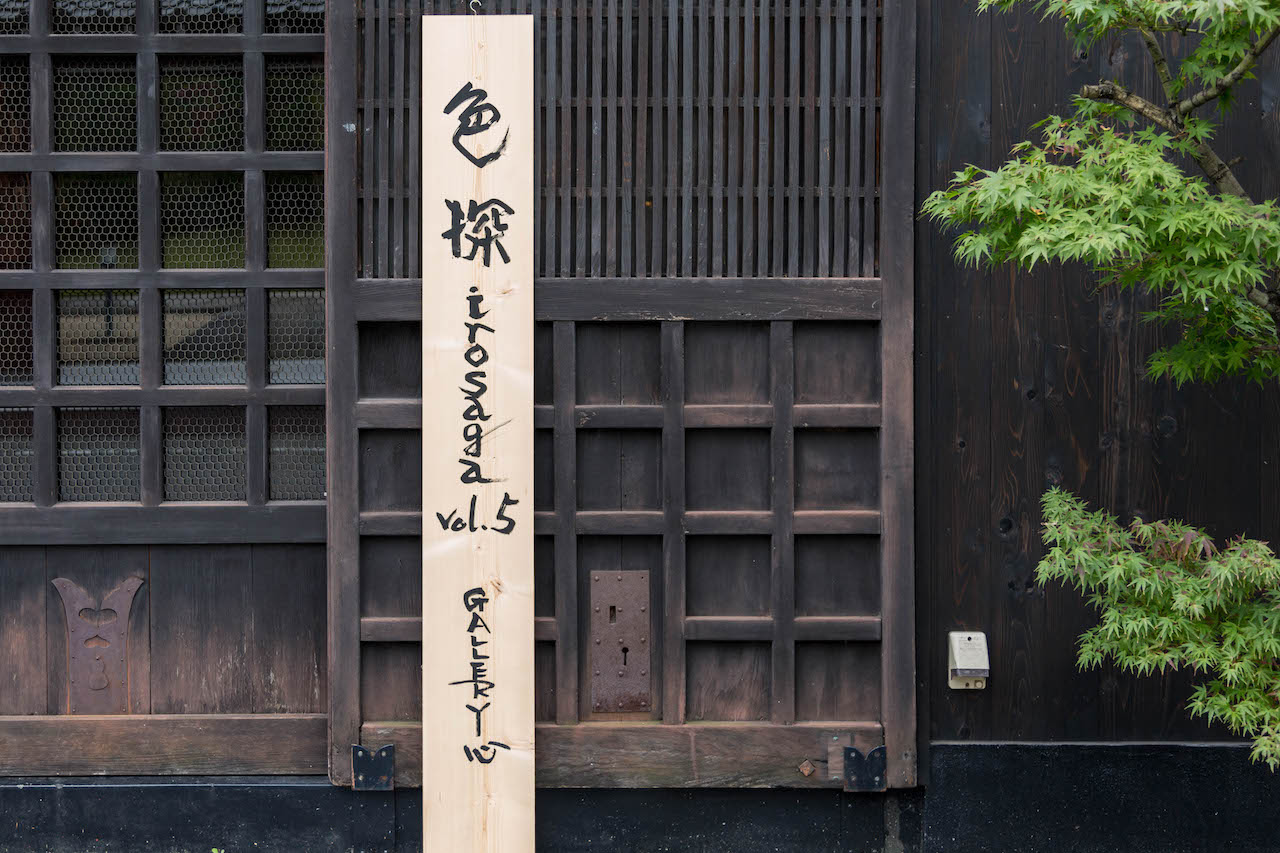 色探
irosaga
vol.5
GALLERY心